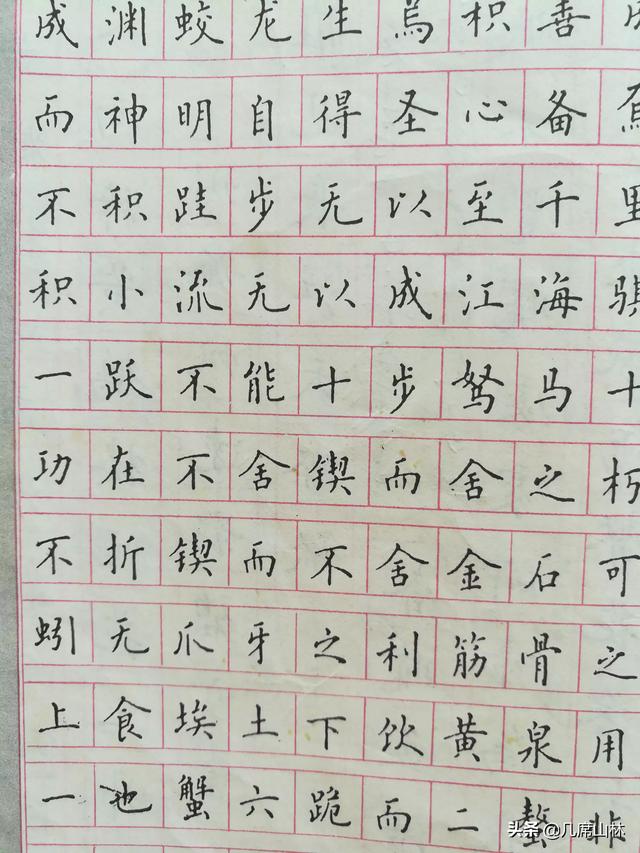 成渊蛟龙生焉积善
而神明自得圣心备焉
不积跬步无以至千里
积小流无以成江海骐
一跃不能十步驽马十
功在不舍锲而舍之朽
不折锲而不舍金石可
蚓无爪牙之利筋骨之
上食埃土下饮黄泉用
一也蟹六跪而二螯非
头条 @几席山林